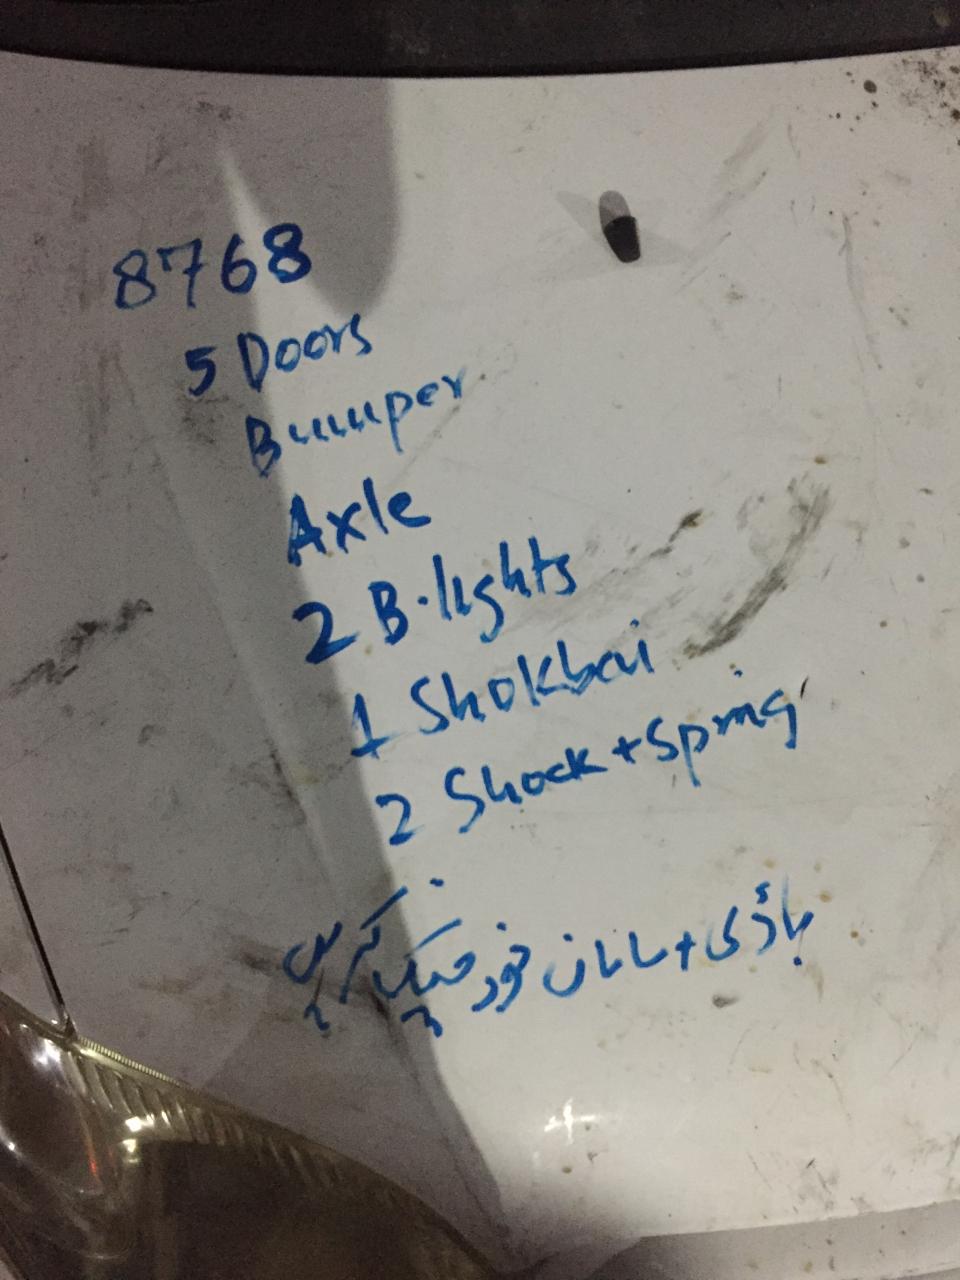 8768
5 Doors
Bumper
Axle
2 B.lights
1 Shokbar
2 Shock + Spring
باڈی + سامان خود چیک کریں